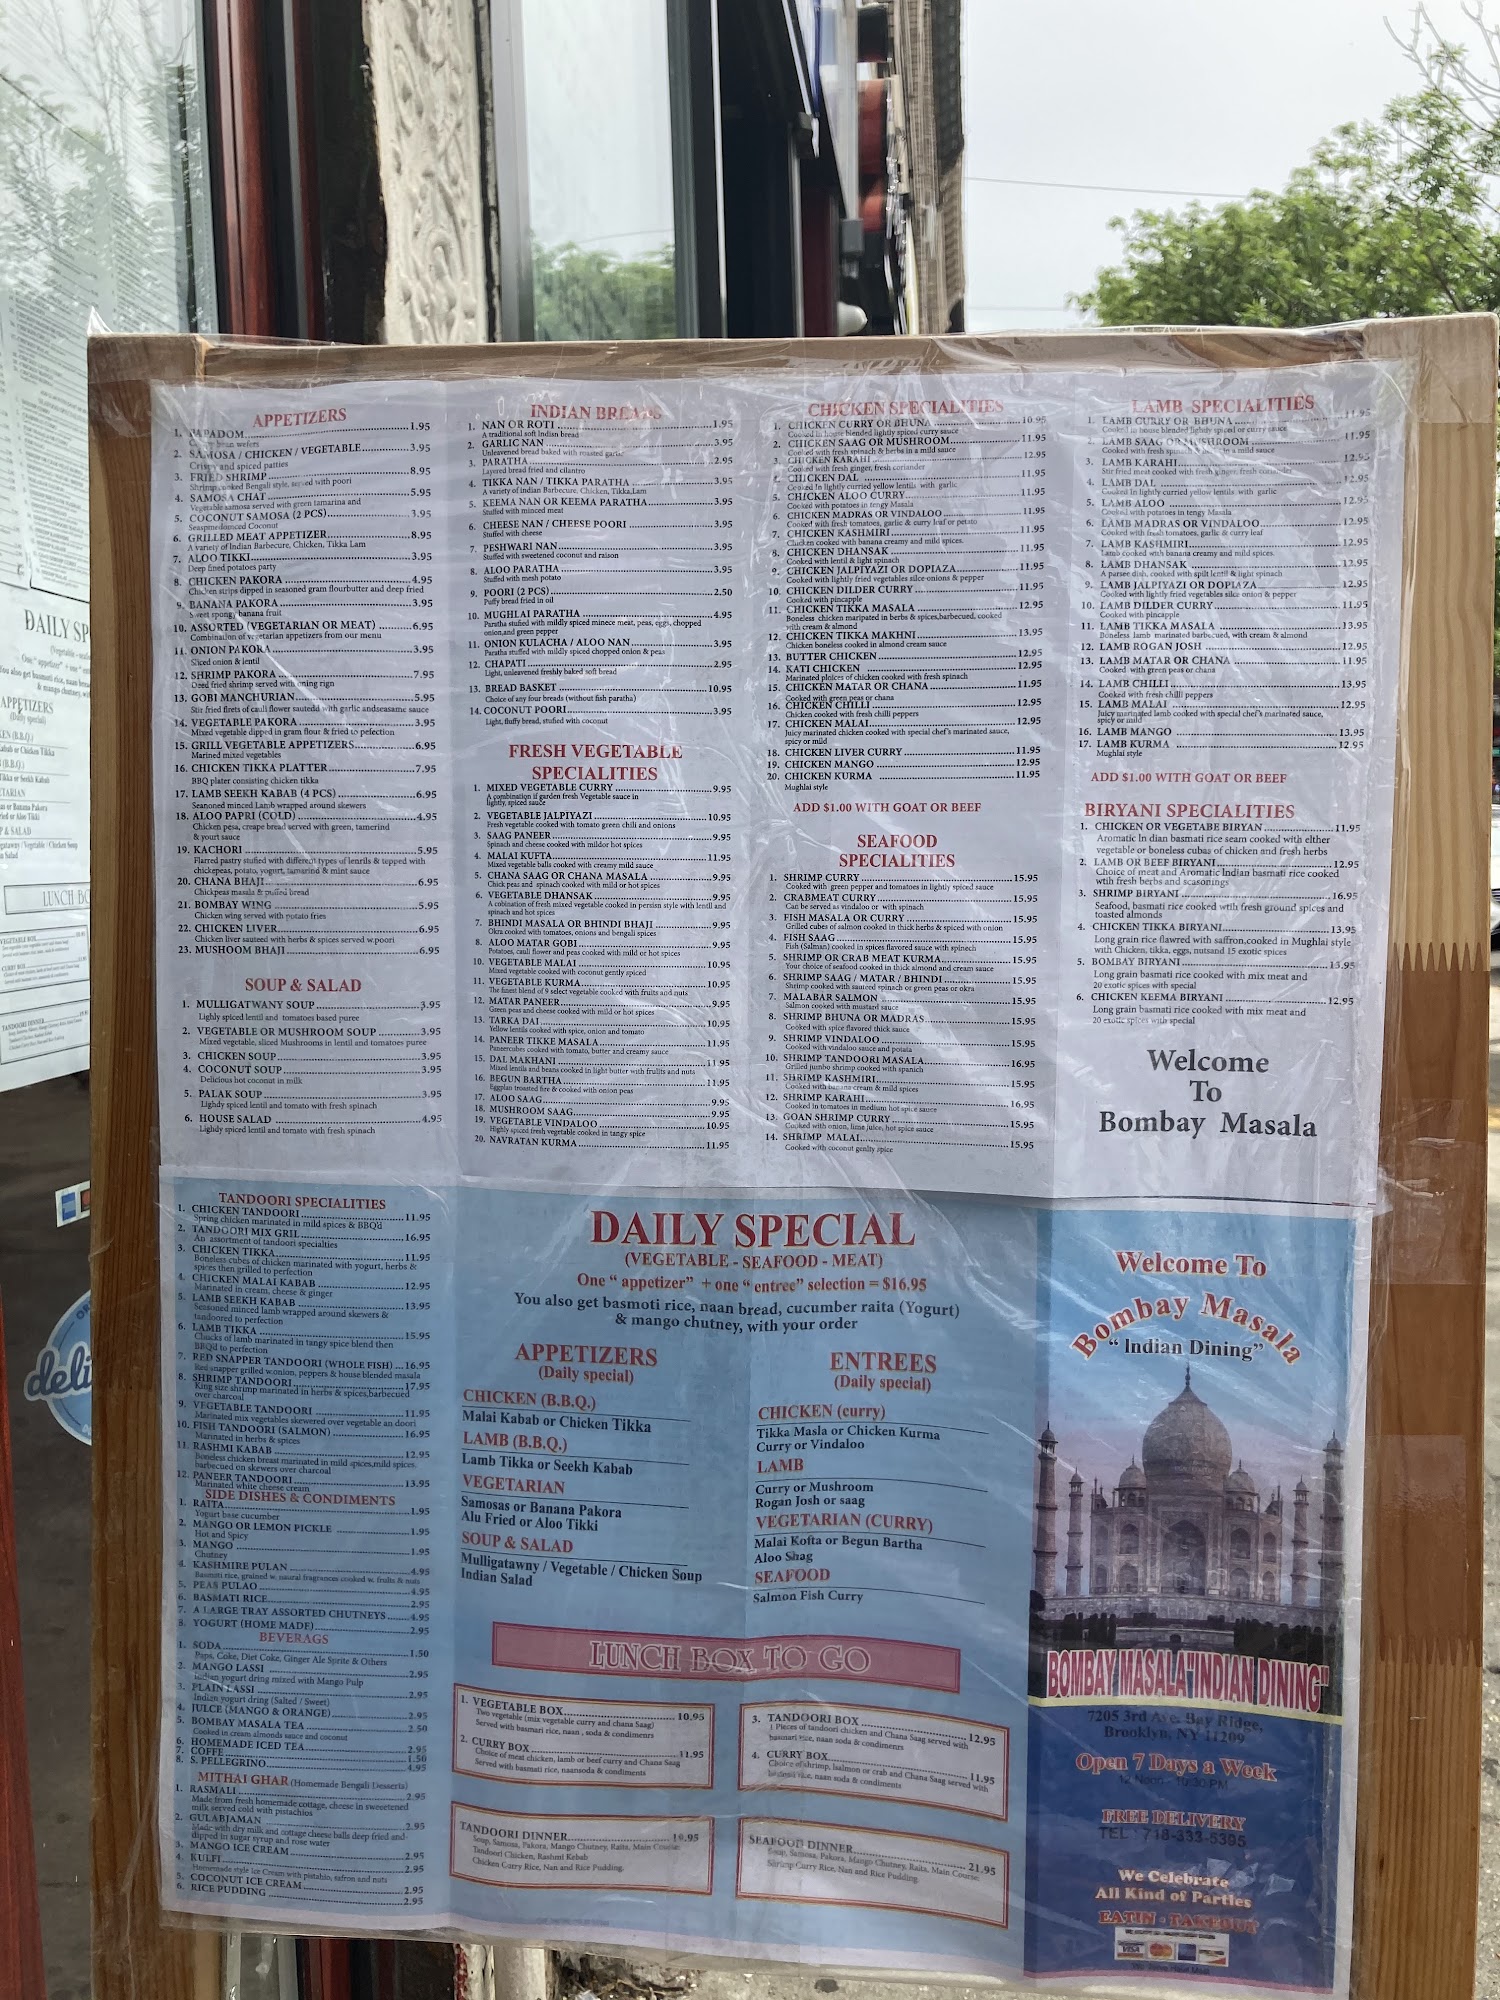 APPETIZERS
1. PAPADOM 1.95
2. SAMOSA / CHICKEN / VEGETABLE 3.95
Crispy and spiced patties
3. FRIED SHRIMP 8.95
Shrimp cooked Bengali style, served with poori
4. SAMOSA CHAT 5.95
Vegetable samosa served with green tamarina and
5. COCONUT SAMOSA (2 PCS) 3.95
Coconut
6. GRILLED MEAT APPETIZER 8.95
A variety of Indian Barbecure, Chicken, Tikka Lam
7. ALOO TIKKI 3.95
Deep fined potatoes party
8. CHICKEN PAKORA 4.95
Chicken strips dipped in seasoned gram flourbutter and deep fried
9. BANANA PAKORA 3.95
Sweet spongy banana fruit
10. ASSORTED (VEGETARIAN OR MEAT) 6.95
Combination of vegetarian appetizers from our menu
11. ONION PAKORA 3.95
Sliced onion & lentil
12. SHRIMP PAKORA 7.95
Deed fried shrimp served with
13. GOBI MANCHURIAN 5.95
Stir fried firets of cauli flower sautedd with garlic andseasame sauce
14. VEGETABLE PAKORA 3.95
Mixed vegetable dipped in gram flour & fried to pefection
15. GRILL VEGETABLE APPETIZERS 6.95
Marined mixed vegetables
16. CHICKEN TIKKA PLATTER 7.95
BBQ plater consisting chicken tikka
17. LAMB SEEKH KABAB (4 PCS) 6.95
Seanoned minced Lamb wrapped around skewers
18. ALOO PAPRI (COLD) 4.95
Chicken pesa, creape bread served with green, tamerind
& yourt sauce
19. KACHORI 5.95
Flarred pastry stufied with different types of lenrils & topped with
chickpeas, potato, yogurt, tamarind & mint sauce
20. CHANA BHAJI 6.95
Chickpeas masala & puffed bread
21. BOMBAY WING 5.95
Chicken wing served with potato fries
22. CHICKEN LIVER 6.95
Chicken liver sauteed with herbs & spices served w.poori
23. MUSHOOM BHAJI 6.95
SOUP & SALAD
1. MULLIGATWANY SOUP 3.95
Lighly spiced lentil and tomatoes based puree
2. VEGETABLE OR MUSHROOM SOUP 3.95
Mixed vegetable, sliced Mushrooms in lentil and tomatoes puree
3. CHICKEN SOUP 3.95
4. COCONUT SOUP 3.95
Delicious hot coconut in milk
5. PALAK SOUP 3.95
Lighdy spiced lentil and tomato with fresh spinach
6. HOUSE SALAD 4.95
Lighdly spiced lentil and tomato with fresh spinach
INDIAN BREADS
1. NAN OR ROTI 1.95
A traditional soft Indian bread
2. GARLIC NAN 3.95
Unleavened bread baked with roasted garlic
3. PARATHA 2.95
Layered bread fried and cilantro
4. TIKKA NAN / TIKKA PARATHA 3.95
A variety of indian Barbecure, Chicken, Tikka,Lam
5. KEEMA NAN OR KEEMA PARATHA 3.95
Stuffed with minced meat
6. CHEESE NAN / CHEESE POORI 3.95
Stuffed with cheese
7. PESHWARI NAN 3.95
Stuffed with sweetened coconut and raison
8. ALOO PARATHA 3.95
Stuffed with mesh potato
9. POORI (2 PCS) 2.50
Puffy bread fried in oil
10. MUGHLAI PARATHA 4.95
Paratha stufied with mildly spiced minece meat, peas, eggs, chopped
onion,and green pepper
11. ONION KULACHA / ALOO NAN 3.95
Paratha stuffed with mildly spiced chopped onion & peas
12. CHAPATI 2.95
Light, unleavened freshly baked soft bread
13. BREAD BASKET 10.95
Choice of any four breads (without fish paratha)
14. COCONUT POORI 3.95
Light, fluffy bread, stufied with coconut
FRESH VEGETABLE
SPECIALITIES
1. MIXED VEGETABLE CURRY 9.95
A combination if garden fresh Vegetable sauce in
lightly, spiced sauce
2. VEGETABLE JALPIYAZI 10.95
Fresh vegetable cooked with tomato green chili and onions
3. SAAG PANEER 9.95
Spinach and cheese cooked with mildor hot spices
4. MALAI KUFTA 11.95
Mixed vegetable balls cooked with creamy mild sauce
5. CHANA SAAG OR CHANA MASALA 9.95
Chick peas and spinach cooked with mild or hot spices
6. VEGETABLE DHANSAK 9.95
A cobination of fresh mixed vegetable cooked in persian style with lentil and
spinach and hot spices
7. BHINDI MASALA OR BHINDI BHAJI 9.95
Okra cooked with tomatoes, onions and bengali spices
8. ALOO MATAR GOBI 9.95
Potatoes, cauli flower and peas cooked with mild or hot spices
10. VEGETABLE MALAI 10.95
Mixed vegetable cooked with coconut gently spiced
11. VEGETABLE KURMA 10.95
The finest blend of 9 select vegetable cooked with fruits and nuts
12. MATAR PANEER 9.95
Green peas and cheese cooked with mild or hot spices
13. TARKA DAI 10.95
Yellow lentils cooked with spice, onion and tomato
14. PANEER TIKKE MASALA 11.95
Paneercubes cooked with tomato, butter and creamy sauce
15. DAL MAKHANI 11.95
Mixed lentils and beans cooked in light butter with fruilts and nuts
16. BEGUN BARTHA 11.95
Eggplan troasted fire & cooked with onion peas
17. ALOO SAAG 9.95
18. MUSHROOM SAAG 9.95
19. VEGETABLE VINDALOO 10.95
Highly spiced fresh vegetable cooked in tangy spice
20. NAVRATAN KURMA 11.95
CHICKEN SPECIALITIES
1. CHICKEN CURRY OR BHUNA 10.95
Cooked in house blended lightly spiced curry sauce
2. CHICKEN SAAG OR MUSHROOM 11.95
Cooked with fresh spinach & herbs in a mild sauce
3. CHICKEN KARAHI 12.95
Cooked with fresh ginger, fresh coriander
4. CHICKEN DAL 11.95
Cooked In lightly curried yellow lentils with garlic
5. CHICKEN ALOO CURRY 11.95
Cooked with potatoes in tengy Masala
6. CHICKEN MADRAS OR VINDALOO 11.95
Cooked with fresh tomatoes, garlic & curry leaf or petato
7. CHICKEN KASHMIRI 11.95
Chicken cooked with banana creamy and mild spices.
8. CHICKEN DHANSAK 11.95
Cooked with lentil & light spinach
9. CHICKEN JALPIYAZI OR DOPIAZA 11.95
Cooked with lightly fried vegetables silce-onions & pepper
10. CHICKEN DILDER CURRY 11.95
Cooked with pincapple
11. CHICKEN TIKKA MASALA 12.95
Boneless chicken maripated in herbs & spices,barbecued, cooked
with cream & almond
12. CHICKEN TIKKA MAKHNI 13.95
Chicken boneless cooked in almond cream sauce
13. BUTTER CHICKEN 12.95
14. KATI CHICKEN 12.95
Marinated ploices of chicken cooked with fresh spinach
15. CHICKEN MATAR OR CHANA 11.95
Cooked with green peas or chana
16. CHICKEN CHILLI 12.95
Chicken cooked with fresh chilli peppers
17. CHICKEN MALAI 12.95
Juicy marinated chicken cooked with special chef's marinated sauce,
spicy or mild
18. CHICKEN LIVER CURRY 11.95
19. CHICKEN MANGO 12.95
20. CHICKEN KURMA 11.95
Mughlai style
ADD $1.00 WITH GOAT OR BEEF
SEAFOOD
SPECIALITIES
1. SHRIMP CURRY 15.95
Cooked with green pepper and tomatoes in lightly spiced sauce
2. CRABMEAT CURRY 15.95
Can be served as vindaloo or with spinach
3. FISH MASALA OR CURRY 15.95
Grilled cubes of salmon cooked in thick herbs & spiced with onion
4. FISH SAAG 15.95
Fish (Salman) cooked in spices flavored sauce with spinech
5. SHRIMP OR CRAB MEAT KURMA 15.95
Your choice of seafood cooked in thick almond and cream sauce
6. SHRIMP SAAG / MATAR / BHINDI 15.95
Shrimp cooked with sauteed spinach or green peas or okra
7. MALABAR SALMON 15.95
Salmon cooked with mustard sauce
8. SHRIMP BHUNA OR MADRAS 15.95
Cooked with spice flavored thick sauce
9. SHRIMP VINDALOO 15.95
Cooked with vindaloo sauce and potata
10. SHRIMP TANDOORI MASALA 16.95
Grilled jumbo shrimp cooked with spanich
11. SHRIMP KASHMIRI 15.95
Cooked with banana cream & mild spices
12. SHRIMP KARAHI 16.95
Cooked in tomatoes in medium hot spice sauce
13. GOAN SHRIMP CURRY 15.95
Cooked with onion, lime juice, hot spice sauce
14. SHRIMP MALAI 15.95
Cooked with coconut genlty spice
LAMB SPECIALITIES
1. LAMB CURRY OR BHUNA 11.95
Cooked in house blended lightly spiced or curry sauce
2. LAMB SAAG OR MUSHROOM 11.95
Cooked with fresh spinach & herbs in a mild sauce
3. LAMB KARAHI 12.95
Stir fried meat cooked with fresh ginger, fresh coriander
4. LAMB DAL 12.95
Cooked In lightly curried yellow lentils with garlic
5. LAMB ALOO 12.95
Cooked with potatoes in tengy Masala
6. LAMB MADRAS OR VINDALOO 12.95
Cooked with fresh tomatoes, garlic & curry leaf
7. LAMB KASHIMIRI 12.95
Lamb cooked with banana creamy and mild spices
8. LAMB DHANSAK 12.95
A parsee dish, cooked with split lentil & light spinach
9. LAMB JALPIYIZI OR DOPIAZA 12.95
Cooked with lightly fried vegetables silce onion & pepper
10. LAMB DILDER CURRY 11.95
Cooked with pincapple
11. LAMB TIKKA MASALA 13.95
Boneless lamb marinated barbecued, with cream & almond
12. LAMB ROGAN JOSH 12.95
13. LAMB MATAR OR CHANA 11.95
Cooked with green peas or chana
14. LAMB CHILLI 13.95
Cooked with fresh chilli peppers
15. LAMB MALAI 12.95
Juicy marinated lamb cooked with special chef's marinated sauce,
spicy or mild
16. LAMB MANGO 13.95
17. LAMB KURMA 12.95
Mughlai style
ADD $1.00 WITH GOAT OR BEEF
BIRYANI SPECIALITIES
1. CHICKEN OR VEGETABE BIRYAN 11.95
Aromatic In dian basmati rice seam cooked with elther
vegetable or boneless cubes of chicken and fresh herbs
2. LAMB OR BEEF BIRYANI 12.95
Choice of meat and Aromatic Indian basmati rice cooked
wtih fresh berbs and scasonings
3. SHRIMP BIRYANI 16.95
Seafood, basmati rice cooked wtih fresh ground spices and
toasted almonds
4. CHICKEN TIKKA BIRYANI 13.95
Long grain rice flawred with saffron,cooked in Mughlai style
with Chicken, tikka, eggs, nutsand 15 exotic spices
5. BOMBAY BIRYANI 13.95
Long grain basmati rice cooked with mix meat and
20 exotic spices with special
6. CHICKEN KEEMA BIRYANI 12.95
Long grain basmati rice cooked with mix meat and
20 exotic spices with special
Welcome
To
Bombay Masala
TANDOORI SPECIALITIES
1. CHICKEN TANDOORI 11.95
Spring chicken marinated in mild spices & BBQ'd
2. TANDOORI MIX GRIL 16.95
An assortment of tandoori specialties
3. CHICKEN TIKKA 11.95
Boneless cubes of chicken marinated with yogurt, herbs &
spices then grilled to perfection
4. CHICKEN MALAI KABAB 12.95
Marinated in cream, cheese & ginger
5. LAMB SEEKH KABAB 13.95
Seasoned minced lamb wrapped around skewers &
tandoored to perfection
6. LAMB TIKKA 15.95
Chucks of lamb marinated in tangy spice blend then
BBQ'd to perfection
7. RED SNAPPER TANDOORI (WHOLE FISH) 16.95
Red snapper grilled w.onion, peppers & house blended masala
8. SHRIMP TANDOORI 17.95
King size shrimp marinated in herbs & spices,barbecued
over charcoal
9. VEGETABLE TANDOORI 11.95
Marinated mix vegetables skewered over vegetable an doori
10. FISH TANDOORI (SALMON) 16.95
Marinated in herbs & spices
11. RASHMI KABAB 12.95
Boneless chicken breast marinated in mild spices,mild spices,
barbecued on skewers over charcoal
12. PANEER TANDOORI 13.95
Marinated white cheese cream
SIDE DISHES & CONDIMENTS
1. RAITA 1.95
Yogurt base cucumber
2. MANGO OR LEMON PICKLE 1.95
Hot and Spicy
3. MANGO 1.95
Chutney
4. KASHMIRE PULAN 4.95
Basmiti rice, grained w. natural fragrances cooked w. fruits & nuts
5. PEAS PULAO 4.95
6. BASMATI RICE 2.95
7. A LARGE TRAY ASSORTED CHUTNEYS 4.95
8. YOGURT (HOME MADE) 2.95
BEVERAGS
1. SODA 1.50
Paps, Coke, Diet Coke, Ginger Ale Sprite & Others
2. MANGO LASSI 2.95
Indian yogurt dring mixed with Mango Pulp
3. PLAIN LASSI 2.95
Indian yogurt dring (Salted / Sweet)
4. JULCE (MANGO & ORANGE) 2.95
5. BOMBAY MASALA TEA 2.50
Cooked in cream almonds sauce and coconut
6. HOMEMADE ICED TEA 2.95
7. COFFE 1.50
8. S. PELLEGRINO 4.95
MITHAI GHAR (Homemade Bengali Desserta)
1. RASMALI 2.95
Made from fresh homemade cottage, cheese in sweeetened
milk served cold with pistachios
2. GULABJAMAN 2.95
Made with dry milk and cottage cheese balls deep fried and
dipped in sugar syrup and rose water
3. MANGO ICE CREAM 2.95
4. KULFI 2.95
Homemade style Ice Cream with pistahio, safron and nuts
5. COCONUT ICE CREAM 2.95
6. RICE PUDDING 2.95
DAILY SPECIAL
(VEGETABLE - SEAFOOD - MEAT)
One " appetizer" + one " entree" selection = $16.95
You also get basmoti rice, naan bread, cucumber raita (Yogurt)
& mango chutney, with your order
APPETIZERS
(Daily special)
CHICKEN (B.B.Q.)
Malai Kabab or Chicken Tikka
LAMB (B.B.Q.)
Lamb Tikka or Seekh Kabab
VEGETARIAN
Samosas or Banana Pakora
Alu Fried or Aloo Tikki
SOUP & SALAD
Mulligatawny / Vegetable / Chicken Soup
Indian Salad
ENTREES
(Daily special)
CHICKEN (curry)
Tikka Masla or Chicken Kurma
Curry or Vindaloo
LAMB
Curry or Mushroom
Rogan Josh or saag
VEGETARIAN (CURRY)
Malai Kofta or Begun Bartha
Aloo Shag
SEAFOOD
Salmon Fish Curry
LUNCH BOX TO GO
1. VEGETABLE BOX 10.95
Two vegetable (mix vegetable curry and chana Saag)
Served with basmari rice, naan , soda & condimenrs
2. CURRY BOX 11.95
Choice of meat chicken, lamb or beef curry and Chana Saag
Served with basmati rice, naansoda & condiments
3. TANDOORI BOX 12.95
Pieces of tandoori chicken and Chana Saag served with
basmati rice, naan soda & condiments
4. CURRY BOX 11.95
Choice of shrimp, lsalmon or crab and Chana Saag served with
basmati rice, naan soda & condiments
TANDOORI DINNER 19.95
Soup, Samosa, Pakora, Mango Chutney, Raita, Main Course:
Tandoori Chicken, Rashmi Kebab
Chicken Curry Rice, Nan and Rice Pudding.
SEAFOOD DINNER 21.95
Soup, Samosa, Pakora, Mango Chutney, Raita, Main Course:
Shrimp Curry Rice, Nan and Rice Pudding.
Welcome To
Bombay Masala
" Indian Dining"
BOMBAY MASALA"INDIAN DINING"
7205 3rd Ave. Bay Ridge,
Brooklyn, NY 11209
Open 7 Days a Week
12 Noon - 10:30 PM
FREE DELIVERY
TEL : 718-333-5395
We Celebrate
All Kind of Parties
EATIN - TAKEOUT
VISA
DAILY SP
APPETIZERS
(Daily special)
LUNCH BO
deli